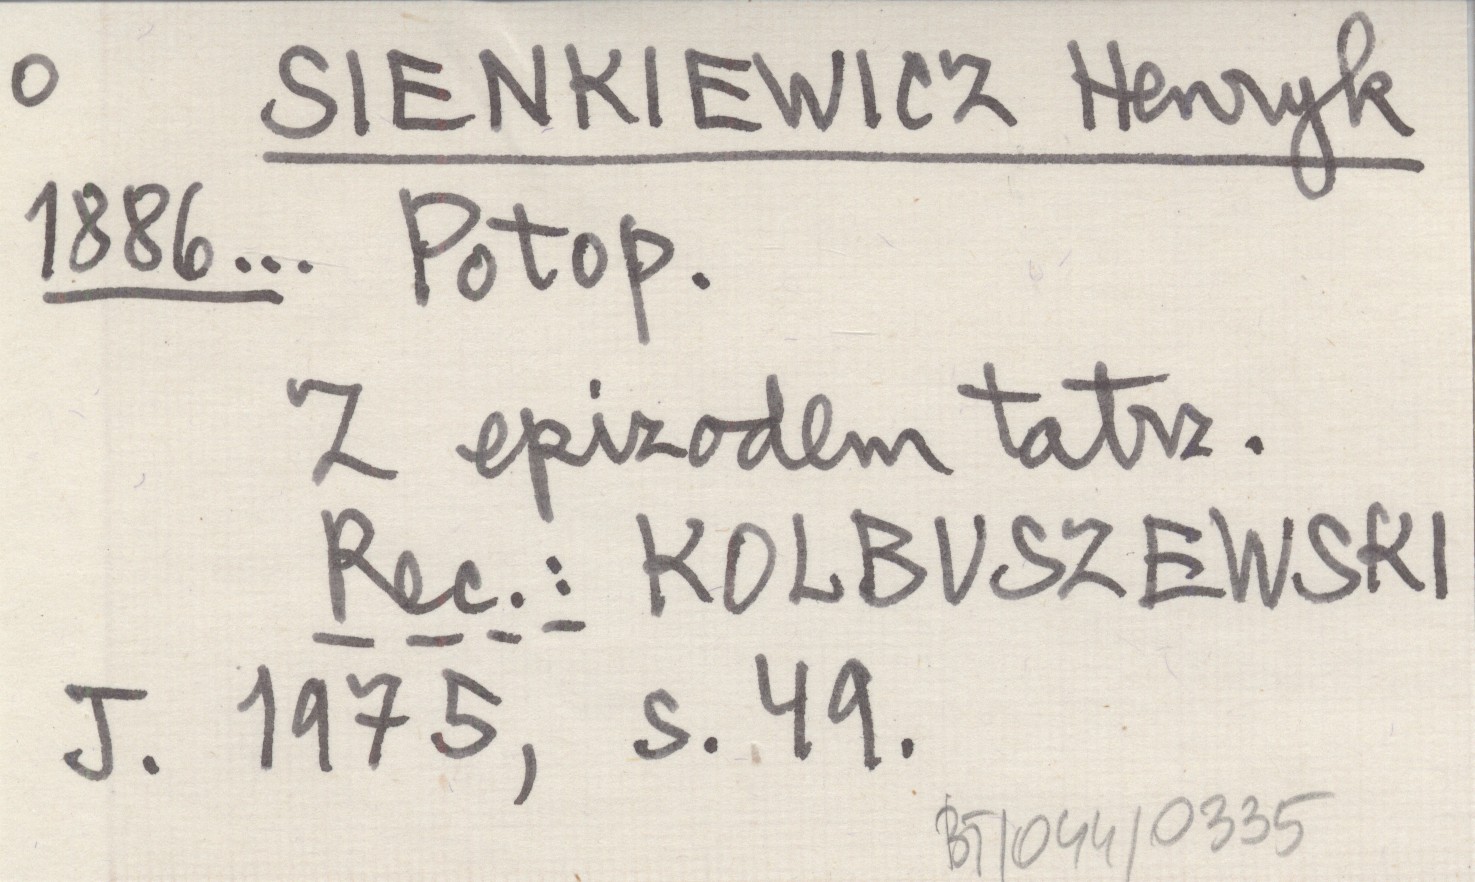 O SIENKIEWICZ Henryk
1886... Potop.
Z epizodem tatrz.
Rec.: KOLBUSZEWSKI
J. 1975, s. 49.
BT/044/0335